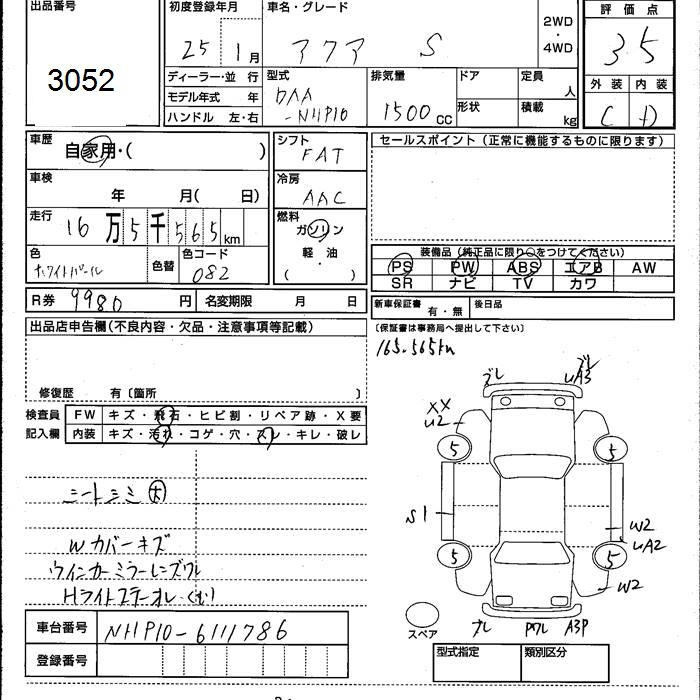 出品番号
3052
初度登録年月
25 1月
車名・グレード
アクア S
2WD
・
4WD
評価点
3.5
外装 内装
C D
ディーラー・並行
モデル年式 年
ハンドル 左・右
型式
DAA
-NHP10
排気量
1500cc
ドア
形状
定員
人
積載
kg
車歴
自家用・( )
車検
年 月( 日)
走行
16万5千565km
色
ホワイトパール
色替
色コード
082
シフト
FAT
冷房
AAC
燃料
ガソリン
軽・油
( )
セールスポイント(正常に機能するものに限ります)
装備品(純正品に限り○をつけてください)
PS PW ABS エアB AW
SR ナビ TV カワ
R券 9980円
名変期限 月 日
新車保証書
有・無
後日品
〔保証書は事務局へ提出して下さい〕
出品店申告欄(不良内容・欠品・注意事項等記載)
修復歴 有〔箇所 〕
165.565km
検査員
記入欄
FW キズ・飛石・ヒビ割・リペア跡・X要
内装 キズ・汚れ・コゲ・穴・スレ・キレ・破レ
シートシミ大
Wカバーキズ
ウインカーミラーレンズワレ
Hライトステーオレ・くもり
ズレ
ズレ
UA3
XX
U2
5
5
S1
W2
UA2
5
5
W2
スペア
ズレ
PワレA3P
車台番号
NHP10-6111786
登録番号
型式指定
類別区分